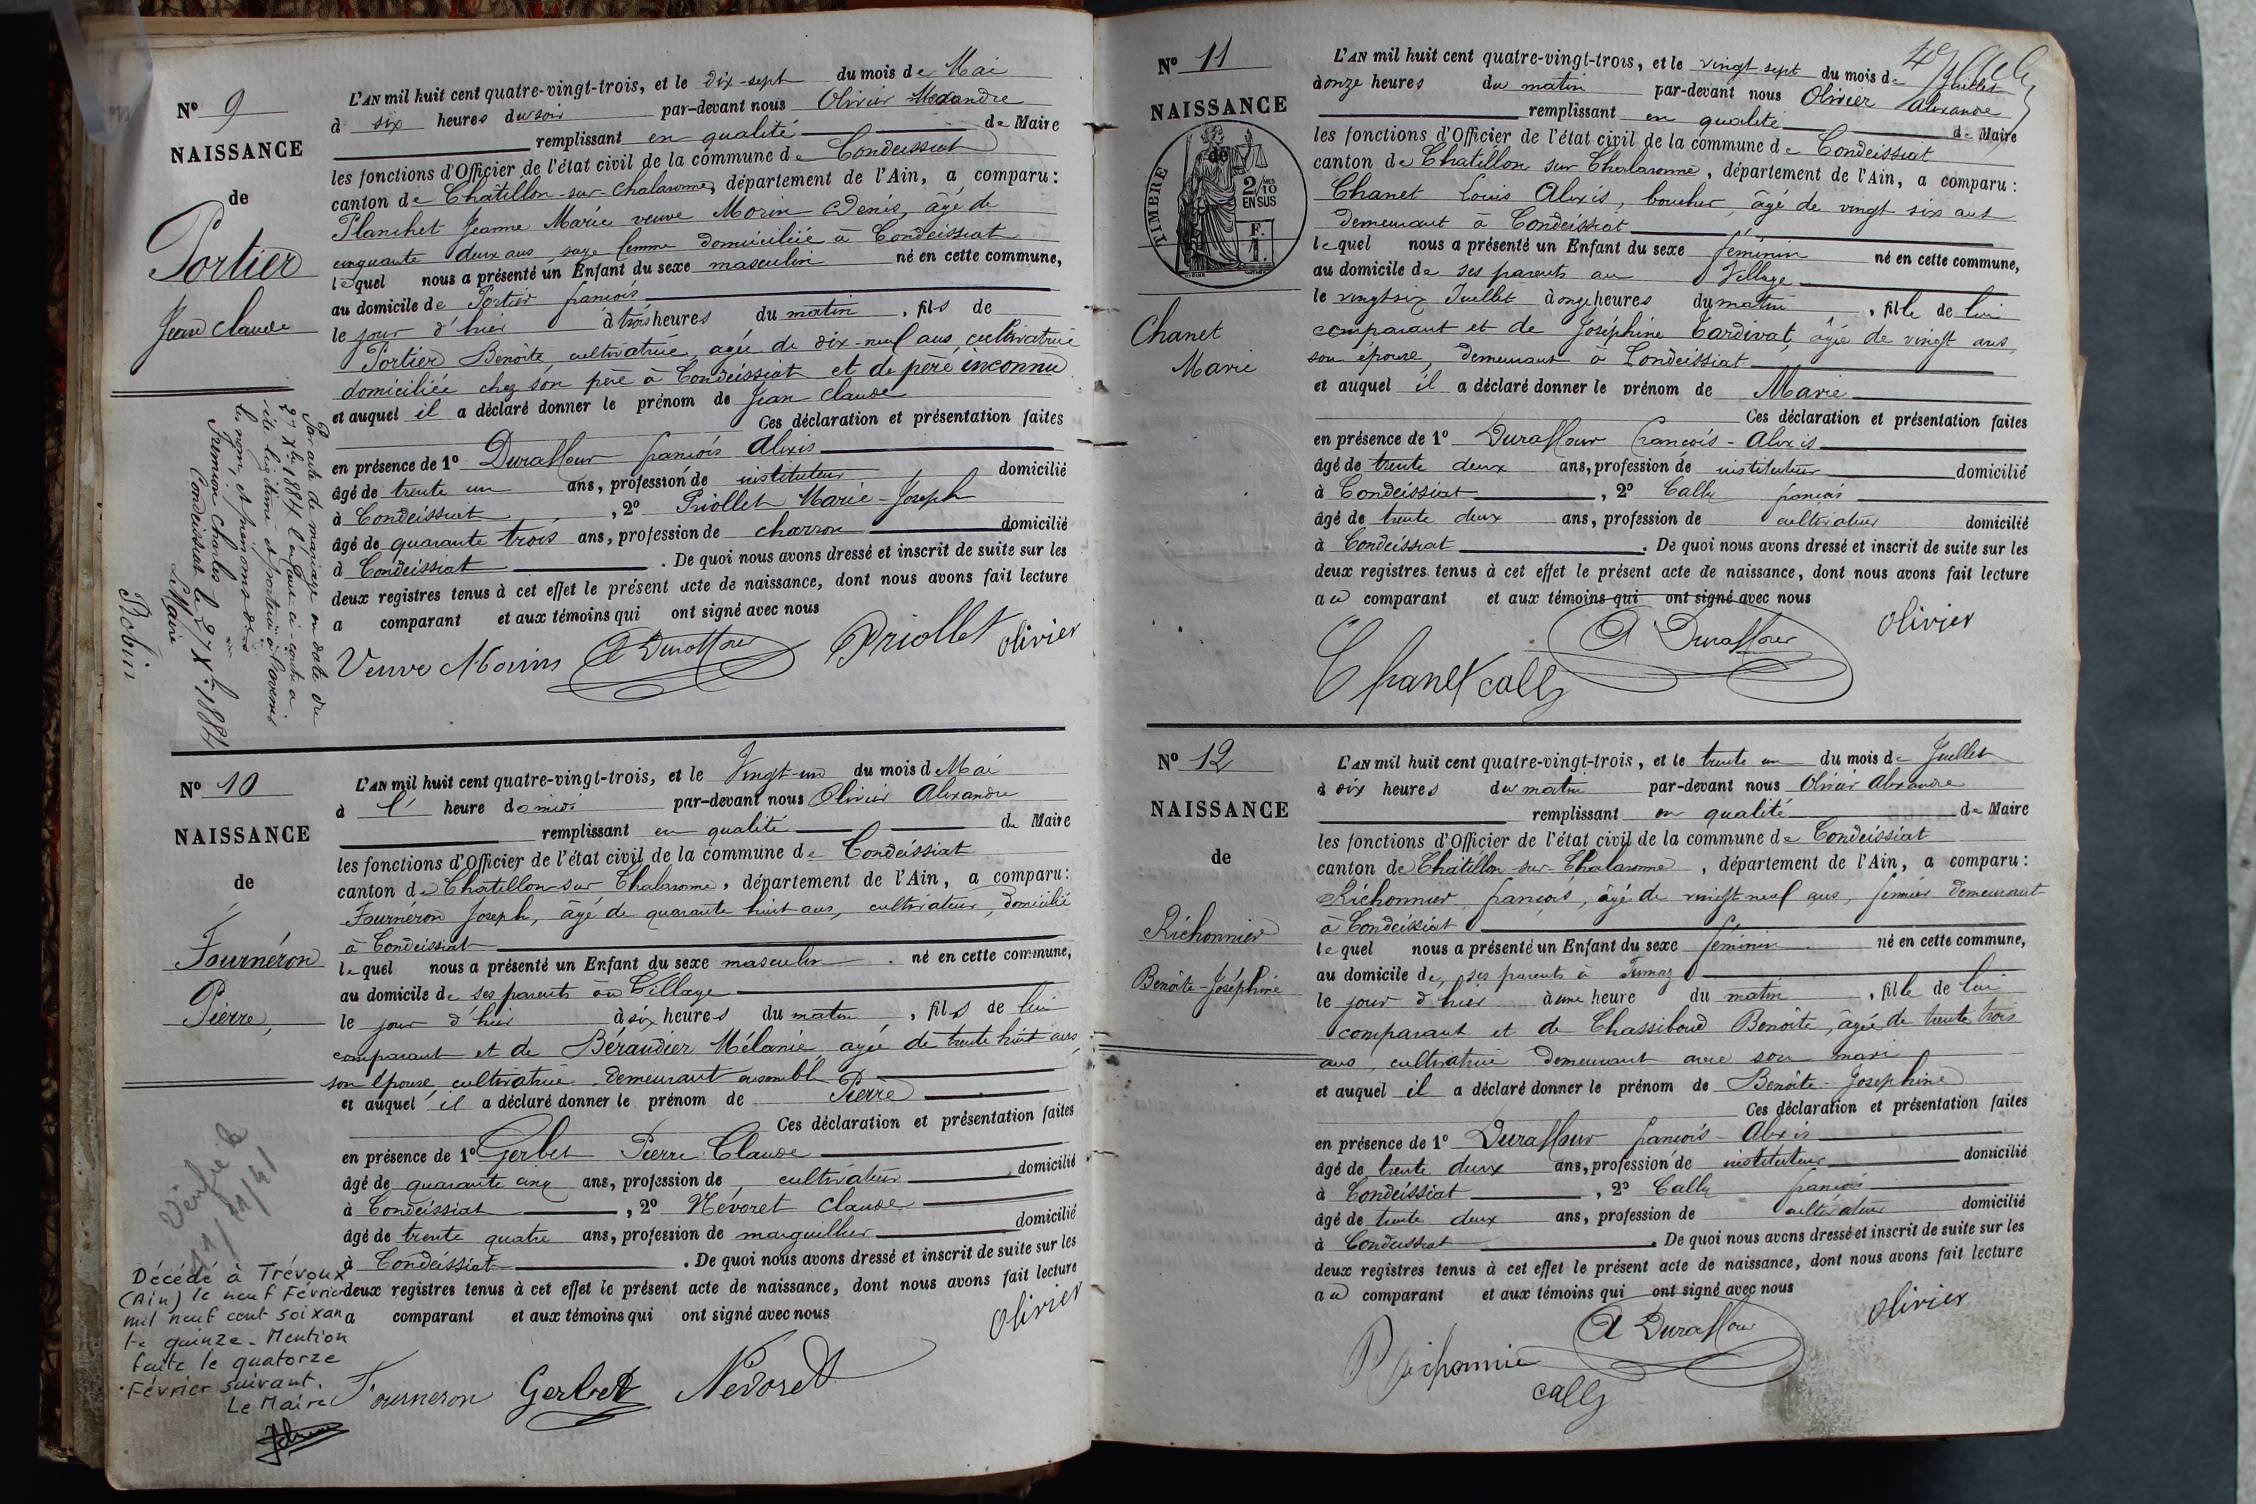 Nº 9
NAISSANCE
de
Portier
Jean Claude
L'AN mil huit cent quatre-vingt-trois, et le dix-sept du mois de Mai
à six heures du soir par-devant nous Olivier Alexandre
remplissant en qualité de Maire
les fonctions d'Officier de l'état civil de la commune de Condeissiat
canton de Châtillon-sur-Chalaronne, département de l'Ain, a comparu:
Planchet Jeanne Marie veuve Morin Denis, âgé de
cinquante deux ans, sage femme domiciliée à Condeissiat
lequel nous a présenté un Enfant du sexe masculin né en cette commune,
au domicile de Portier françois
le jour d'hier à trois heures du matin, fils de
Portier Benoîte, cultivatrice, agée de dix-neuf ans, cultivatrice
domiciliée chez son père à Condeissiat et de père inconnu
et auquel il a déclaré donner le prénom de Jean Claude
Ces déclaration et présentation faites
en présence de 1º Duraffour françois Alexis
âgé de trente un ans, profession de instituteur domicilié
à Condeissiat, 2º Priollet Marie-Joseph
âgé de quarante trois ans, profession de charron domicilié
à Condeissiat. De quoi nous avons dressé et inscrit de suite sur les
deux registres tenus à cet effet le présent acte de naissance, dont nous avons fait lecture
a comparant et aux témoins qui ont signé avec nous
Veuve Morin A Duraffour Priollet Olivier
Par acte de mariage en date du
27 Xbre 1884 l'enfant ci-contre a
été légitimé et portera à l'avenir
le nom et prénoms de
Fremion Charles
Condeissiat le 27 Xbre 1884
Le Maire
Robin
Nº 10
NAISSANCE
de
Fournéron
Pierre,
L'AN mil huit cent quatre-vingt-trois, et le Vingt-un du mois de Mai
à l' heure de midi par-devant nous Olivier Alexandre
remplissant en qualité de Maire
les fonctions d'Officier de l'état civil de la commune de Condeissiat
canton de Châtillon-sur-Chalaronne, département de l'Ain, a comparu:
Fournéron Joseph, âgé de quarante huit ans, cultivateur, domicilié
à Condeissiat
lequel nous a présenté un Enfant du sexe masculin né en cette commune,
au domicile de ses parents au Village
le jour d'hier à six heures du matin, fils de lui
comparant et de Béraudier Mélanie, agée de trente huit ans,
son épouse, cultivatrice demeurant ensemble
et auquel il a déclaré donner le prénom de Pierre
Ces déclaration et présentation faites
en présence de 1º Gerbet Pierre Claude
âgé de quarante cinq ans, profession de cultivateur domicilié
à Condeissiat, 2º Névoret Claude
âgé de trente quatre ans, profession de marguillier domicilié
à Condéissiat. De quoi nous avons dressé et inscrit de suite sur les
deux registres tenus à cet effet le présent acte de naissance, dont nous avons fait lecture
a comparant et aux témoins qui ont signé avec nous
Fourneron Gerbet Nevoret Olivier
Vérifié le
11/11/41
Décédé à Trévoux
(Ain) le neuf Février
mil neuf cent soixan
te quinze. Mention
faite le quatorze
Février suivant.
Le Maire
Nº 11
NAISSANCE
de
TIMBRE
2/10
EN SUS
F.
1.
Chanet
Marie
L'AN mil huit cent quatre-vingt-trois, et le vingt sept du mois de Juillet
à onze heures du matin par-devant nous Olivier Alexandre
remplissant en qualité de Maire
les fonctions d'Officier de l'état civil de la commune de Condeissiat
canton de Chatillon sur Chalaronne, département de l'Ain, a comparu:
Chanet Louis Alexis, boucher, âgé de vingt six ans
demeurant à Condeissiat
lequel nous a présenté un Enfant du sexe féminin né en cette commune,
au domicile de ses parents au Village
le vingt six Juillet à onze heures du matin, fille de lui
comparant et de Joséphine Tardivat, âgée de vingt ans,
son épouse, demeurant à Condeissiat
et auquel il a déclaré donner le prénom de Marie
Ces déclaration et présentation faites
en présence de 1º Duraffour francois-Alexis
âgé de trente deux ans, profession de instituteur domicilié
à Condeissiat, 2º Cally françois
âgé de trente deux ans, profession de cultivateur domicilié
à Condeissiat. De quoi nous avons dressé et inscrit de suite sur les
deux registres tenus à cet effet le présent acte de naissance, dont nous avons fait lecture
au comparant et aux témoins qui ont signé avec nous
Chanet Cally A Duraffour Olivier
Nº 12
NAISSANCE
de
Richonnier
Benoîte-Joséphine
L'AN mil huit cent quatre-vingt-trois, et le trente un du mois de Juillet
à six heures du matin par-devant nous Olivier Alexandre
remplissant en qualité de Maire
les fonctions d'Officier de l'état civil de la commune de Condeissiat
canton de Châtillon-sur-Chalaronne, département de l'Ain, a comparu:
Richonnier françois, âgé de vingt neuf ans, fermier demeurant
à Condeissiat
lequel nous a présenté un Enfant du sexe féminin né en cette commune,
au domicile de ses parents à
le jour d'hier à une heure du matin, fille de lui
comparant et de Chassiboud Benoîte, âgée de trente trois
ans, cultivatrice demeurant avec son mari
et auquel il a déclaré donner le prénom de Benoîte-Josephine
Ces déclaration et présentation faites
en présence de 1º Duraffour françois-Alexis
âgé de trente deux ans, profession de instituteur domicilié
à Condeissiat, 2º Cally françois
âgé de trente deux ans, profession de cultivateur domicilié
à Condeissiat. De quoi nous avons dressé et inscrit de suite sur les
deux registres tenus à cet effet le présent acte de naissance, dont nous avons fait lecture
au comparant et aux témoins qui ont signé avec nous
Richonnier Cally A Duraffour Olivier